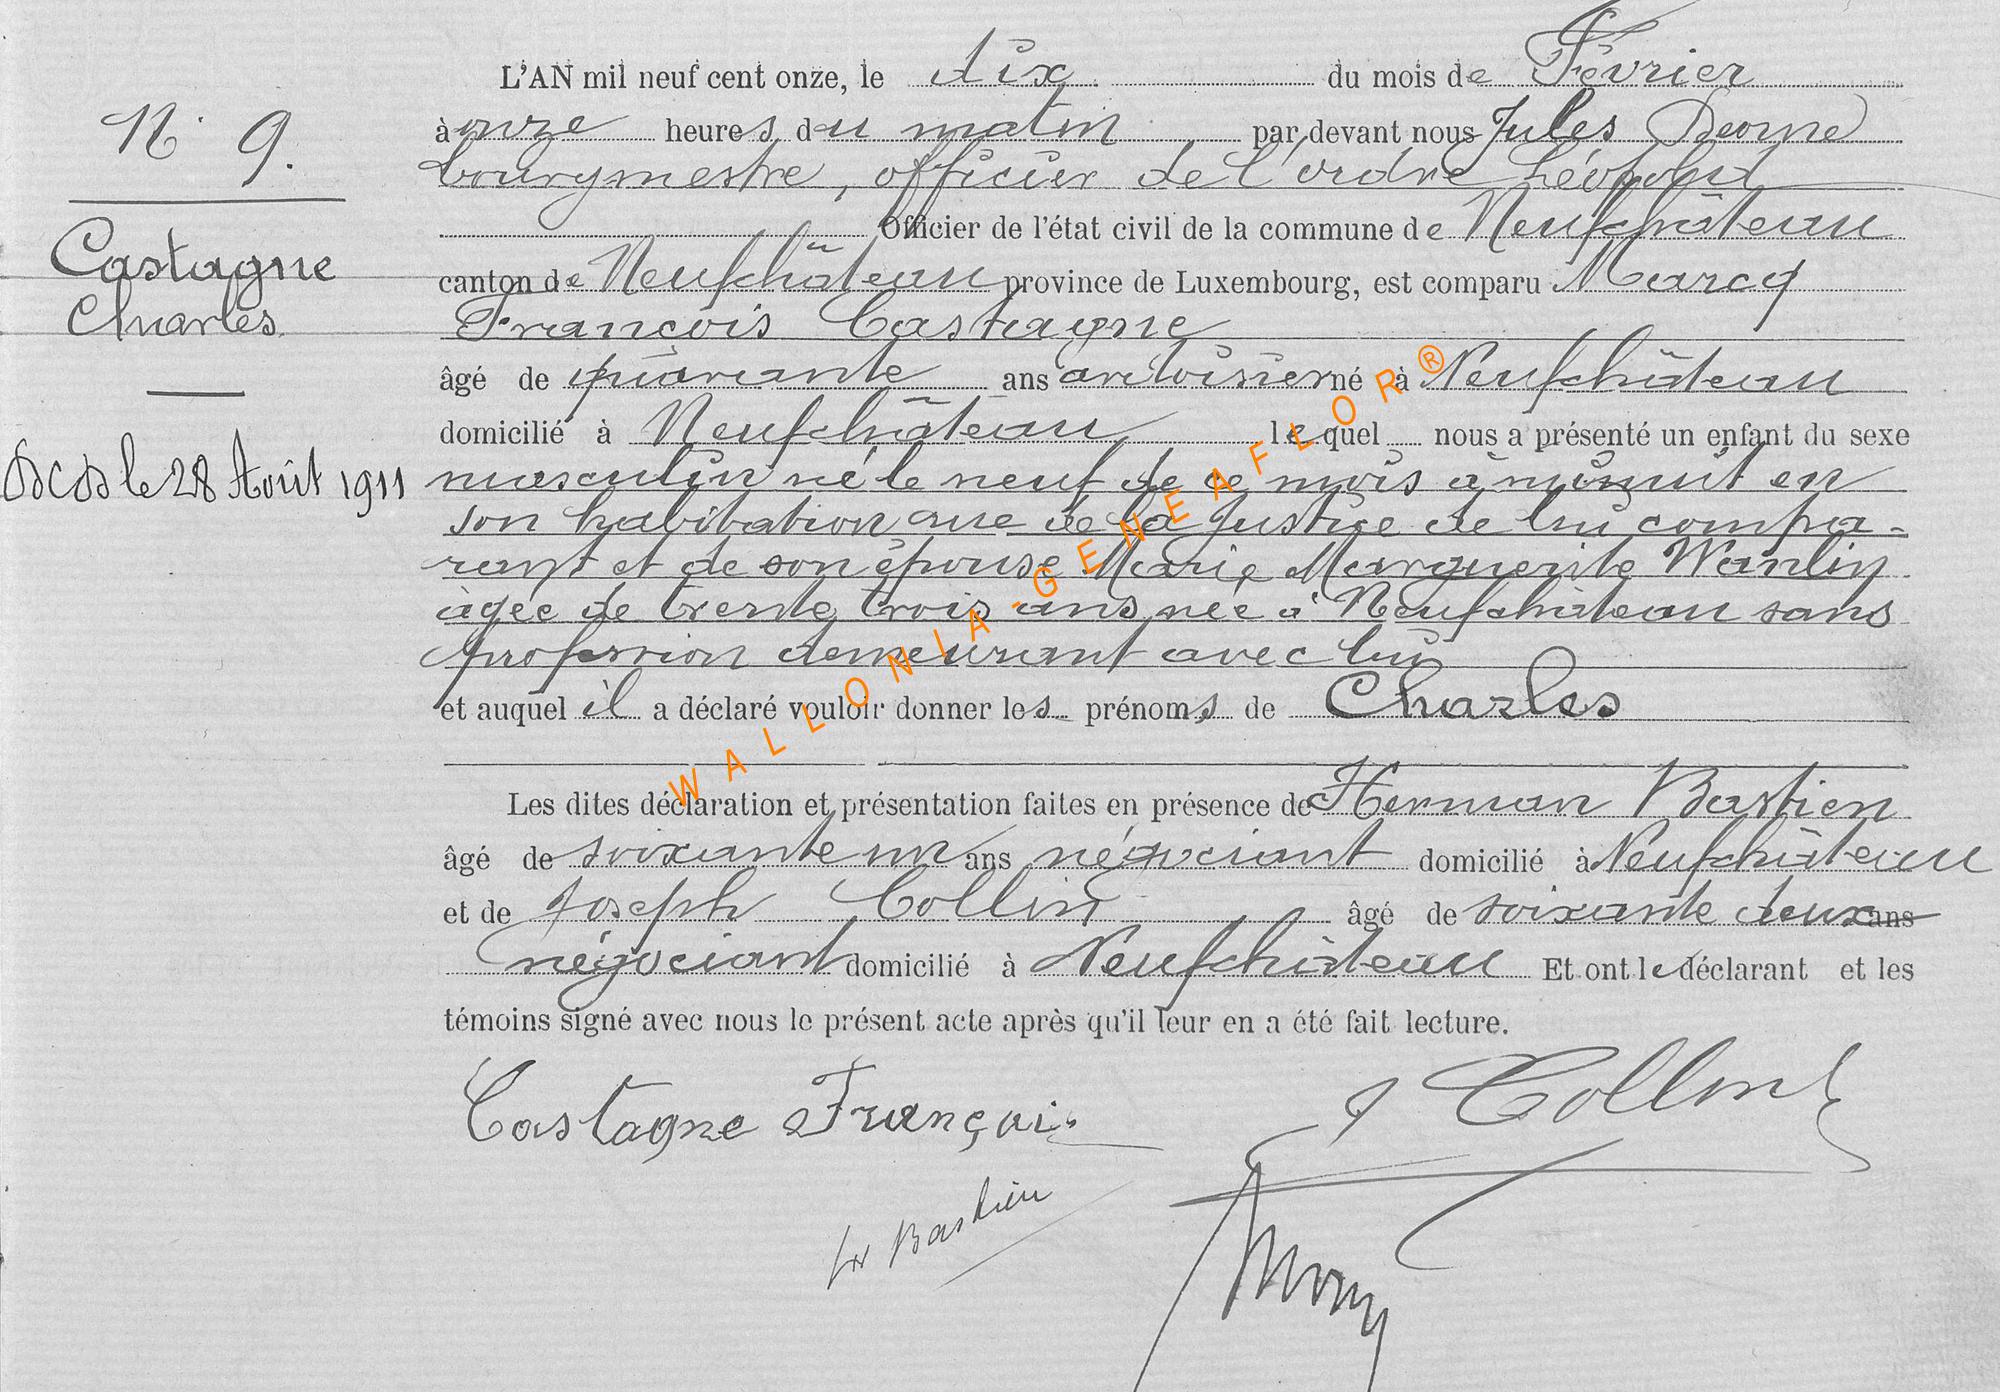 N° 9.
Castagne
Charles
DCD le 28 Août 1911
L'AN mil neuf cent onze, le dix du mois de Février
à onze heures du matin par devant nous Jules
bourgmestre, officier de l'ordre Léopold
Officier de l'état civil de la commune de Neufchâteau
canton de Neufchâteau province de Luxembourg, est comparu Marcq
François Castagne
âgé de quarante ans ardoisier né à Neufchâteau
domicilié à Neufchâteau lequel nous a présenté un enfant du sexe
masculin né le neuf de ce mois à minuit en
son habitation rue de la Justice de lui compa-
rant et de son épouse Marie Marguerite Wanlin
âgée de trente trois ans née à Neufchâteau sans
profession demeurant avec lui
et auquel il a déclaré vouloir donner les prénoms de Charles
Les dites déclaration et présentation faites en présence de Herman Bastien
âgé de soixante un ans négociant domicilié à Neufchâteau
et de Joseph Collin âgé de soixante deux ans
négociant domicilié à Neufchâteau Et ont le déclarant et les
témoins signé avec nous le présent acte après qu'il leur en a été fait lecture.
Castagne François
J Collin
Bastien
WALLONIA-GENEAFLOR®